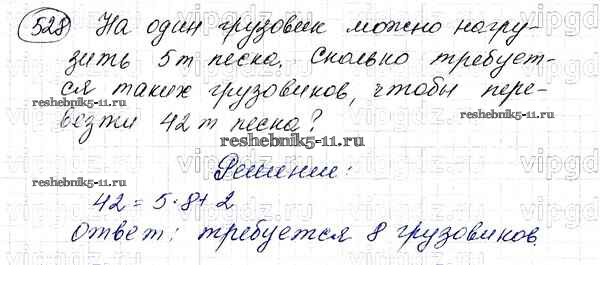 528 На один грузовик можно нагру-
зить 5 т песка. Сколько требует-
ся таких грузовиков, чтобы пере-
везти 42 т песка?
Решение:
42 = 5·8+2
Ответ: требуется 8 грузовиков.
reshebnik5-11.ru
reshebnik5-11.ru
reshebnik5-11.ru
reshebnik5-11.ru
vipgdz.com